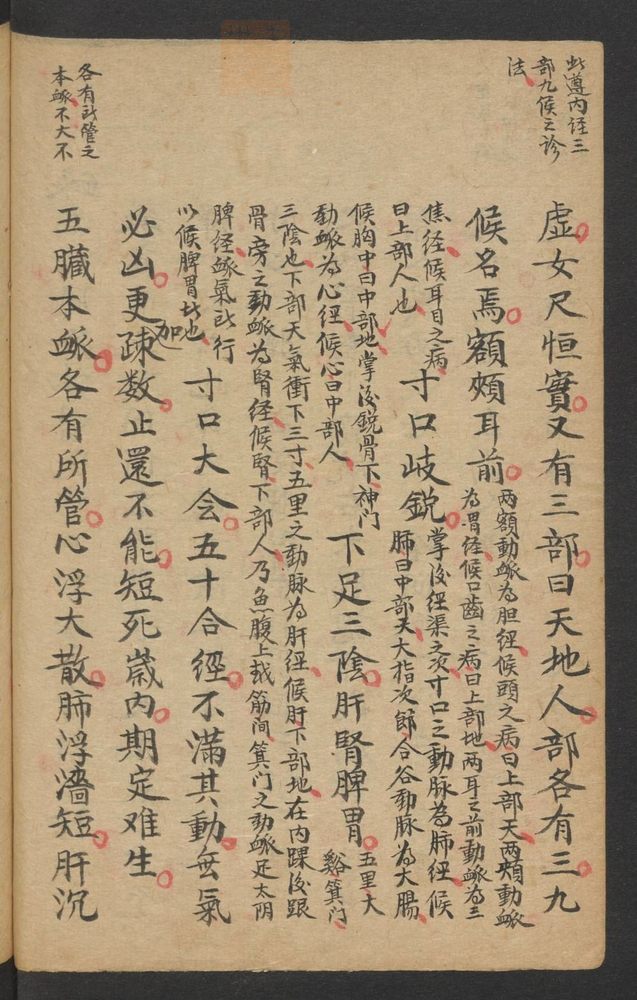 此遵内经三
部九候之診
法
虚女尺恒實又有三部曰天地人部各有三九
候名焉額頰耳前
两額動衇為胆经候頭之病曰上部天两頰動衇
為胃经候口齒之病曰上部地两耳之前動衇為三
焦经候耳目之病
曰上部人也
寸口岐鋭
掌後经渠之次寸口之動脉為肺经候
肺曰中部天大指次節合谷動脉為大腸
候胸中曰中部地掌後鋭骨下神门
動衇為心经候心曰中部人
下足三陰肝腎脾胃
五里大
谿箕门
三陰也下部天氣衝下三寸五里之動脉為肝经候肝下部地在内踝後跟
骨旁之動衇為腎经候腎下部人乃魚腹上越筋間箕门之動衇足太阴
脾经衇氣所行
以候脾胃此也
寸口大会五十合經不滿其動無氣
必凶更加疎数止還不能短死歲内期定难生
各有所管之
本衇不大不
五臓本衇各有所管心浮大散肺浮濇短肝沉